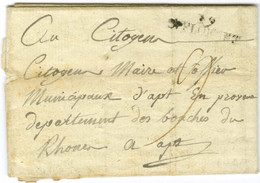 Au Citoyen
Citoyens Maire et officiers
Municipaux d'apt En provence
departement des bouches du
Rhone a apt